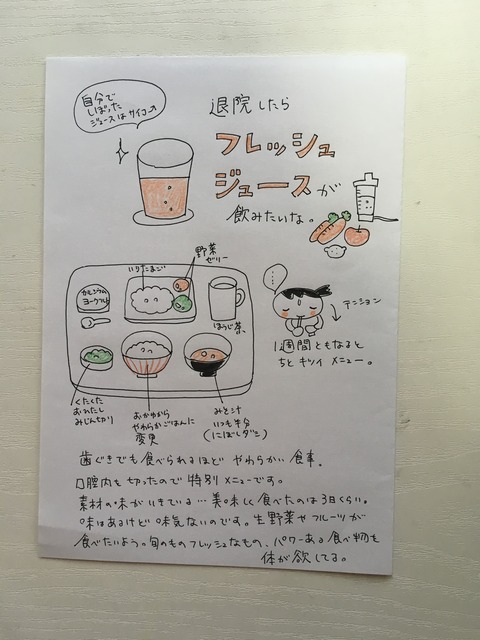 自分で
しぼった
ジュースはサイコー↗
退院したら
フレッシュ
ジュースが
飲みたいな。
野菜
ゼリー
いりたまご
カルシウム
ヨーグルト
ほうじ茶
テンション
1週間ともなると
ちとキツイメニュー。
くたくた
おひたし
みじん切り
おかゆから
やわらかごはんに
変更
みそ汁
いつも半分
(にぼしダシ)
歯ぐきでも食べられるほどやわらかい食事。
口腔内も切ったので特別メニューです。
素材の味がいきている…美味しく食べたのは3日くらい。
味はあるけど味気ないのです。生野菜やフルーツが
食べたいよう。旬のものフレッシュなもの、パワーある食べ物を
体が欲してる。